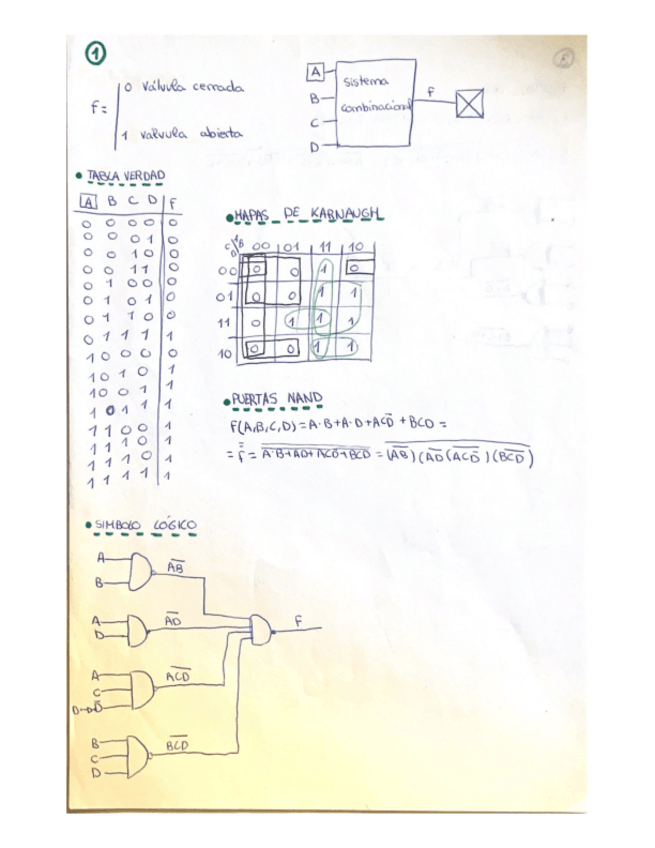 1
f=
0 válvula cerrada
1 valvula abierta
A
B
C
D
sistema
combinacional
f
• TABLA VERDAD
A B C D F
0 0 0 0 0
0 0 0 1 0
0 0 1 0 0
0 0 1 1 0
0 1 0 0 0
0 1 0 1 0
0 1 1 0 0
0 1 1 1 1
1 0 0 0 0
1 0 1 0 1
1 0 0 1 1
1 0 1 1 1
1 1 0 0 1
1 1 1 0 1
1 1 1 0 1
1 1 1 1 1
• MAPAS DE KARNAUGH
00 01 11 10
00 0 0 1 0
01 0 0 1 1
11 0 1 1 1
10 0 0 1 1
• PUERTAS NAND
F(A,B,C,D)=A·B+A·D+ACD̅ +BCD =
= f̿ = A·B+AD+ACD̅+BCD = (AB)(AD(ACD̅)(BCD)
• SIMBOLO LÓGICO
A
B
AB
A
D
AD
A
C
D
D̅
ACD
B
C
D
BCD
F